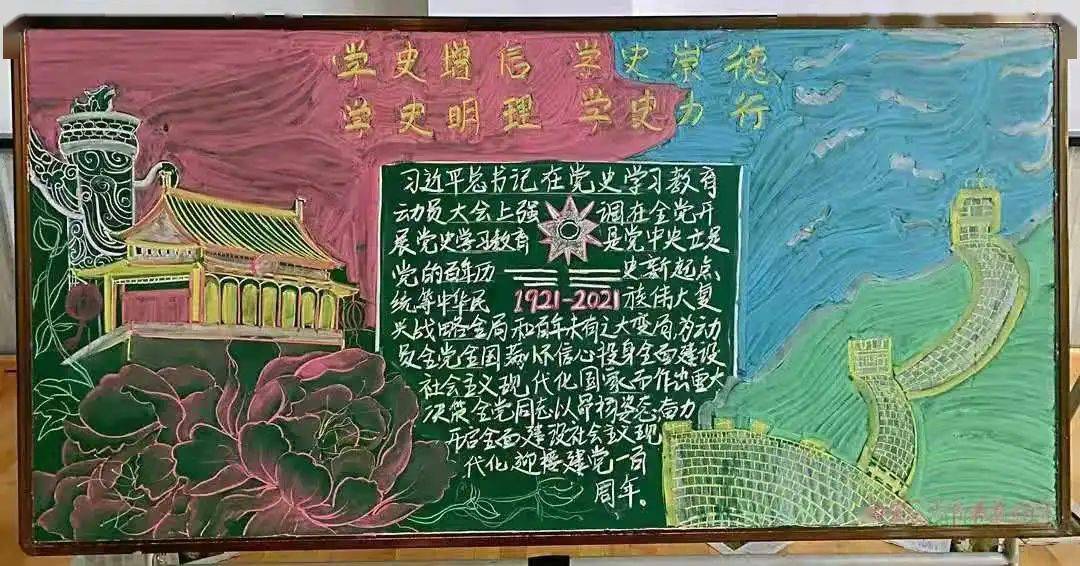 学史增信 学史崇德
学史明理 学史力行
习近平总书记在党史学习教育
动员大会上强 调在全党开
展党史学习教育 是党中央立足
党的百年历 史新起点
统筹中华民 1921-2021 族伟大复
兴战略全局和百年未有之大变局为动
员全党全国满怀信心投身全面建设
社会主义现代化国家而作出重大
决策全党同志以昂扬姿态奋力
开启全面建设社会主义现
代化迎接建党一百
周年。